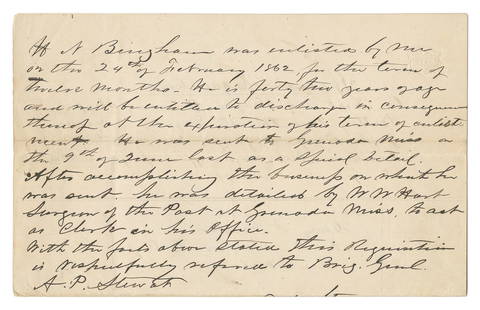 H N Bingham was enlisted by me
on the 24th of February 1862 for the term of
twelve months. He is forty two years of age
and will be entitled to discharge in consequence
thereof at the expiration of his term of enlist
ment. He was sent to Grenada Miss on
the 9th of June last as a Special detail.
After accomplishing the business on which he
was sent, he was detailed by W W Hart
Surgeon of the Post at Grenada Miss, to act
as Clerk in his Office.
With the facts above stated this Requisition
is respectfully referred to Brig. Genl.
A. P. Stewart